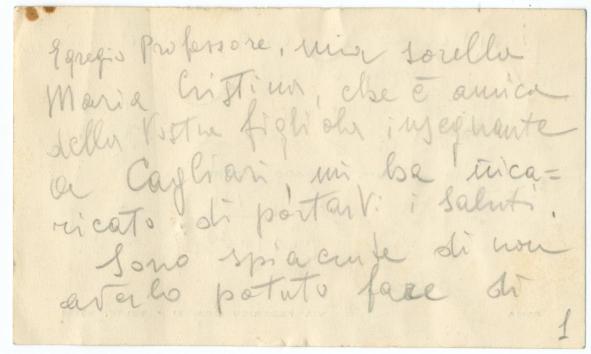 Egregio Professore, mia sorella
Maria Cristina, che è amica
della Vostra figliola insegnante
a Cagliari, mi ha inca=
ricato di portarVi i saluti.
Sono spiacente di non
averlo potuto fare di
1